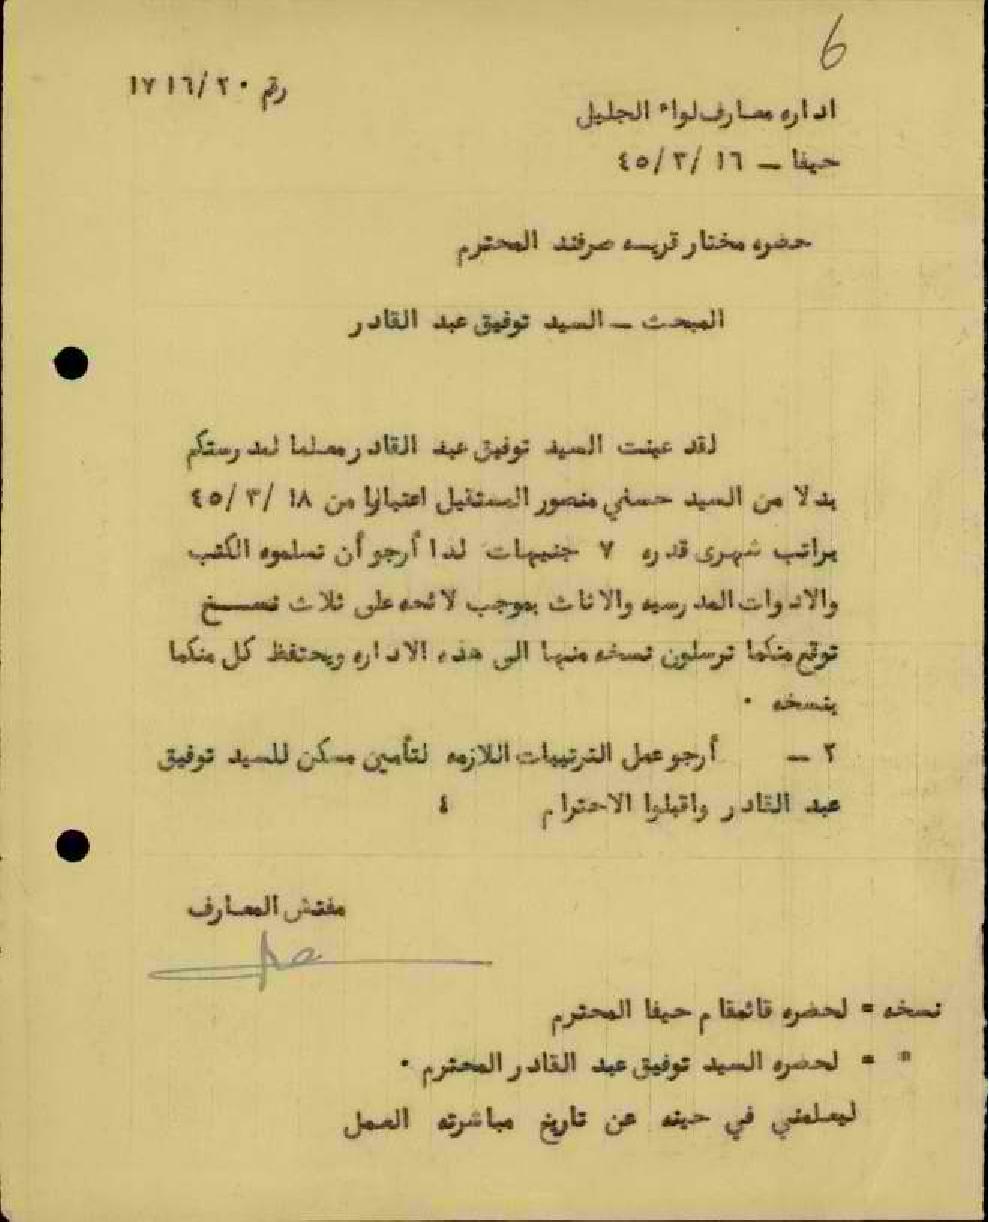 6
رقم ١٧١٦/٢٠
اداره معارف لواء الجليل
حيفا — ١٦ /٣ /٤٥
حضره مختار قريسه صرفند المحترم
المبحث — السيد توفيق عبد القادر
لقد عينت السيد توفيق عبد القادر معلما لمدرستكم
بدلا من السيد حسني منصور المستقيل اعتبارا من ١٨ /٣ /٤٥
براتب شهرى قدره ٧ جنيهات لذا أرجو أن تسلموه الكتب
والادوات المدرسيه والاثاث بموجب لائحه على ثلاث نســخ
توقع منكما ترسلون نسخه منها الى هذه الاداره ويحتفظ كل منكما
بنسخه ٠
٢ — أرجو عمل الترتيبات اللازمه لتأمين مسكن للسيد توفيق
عبد القادر واقبلوا الاحترام ٤
مفتش المعارف
نسخه = لحضره قائمقام حيفا المحترم
" = لحضره السيد توفيق عبد القادر المحترم ٠
ليعلمني في حينه عن تاريخ مباشرته العمل